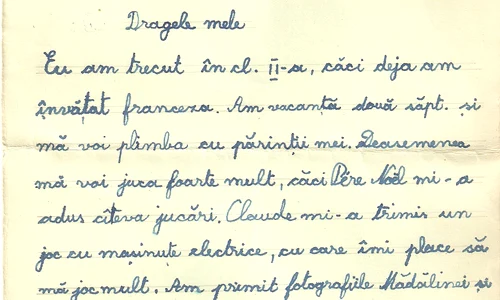 Dragele mele
Eu am trecut în cl. II-a, căci deja am
învățat franceza. Am vacanță două săpt. și
mă voi plimba cu părinții mei. Deasemenea
mă voi juca foarte mult, căci Père Noël mi-a
adus cîteva jucări. Claude mi-a trimis un
joc cu mașinuțe electrice, cu care îmi place să
mă joc mult. Am primit fotografiile Mădălinei și